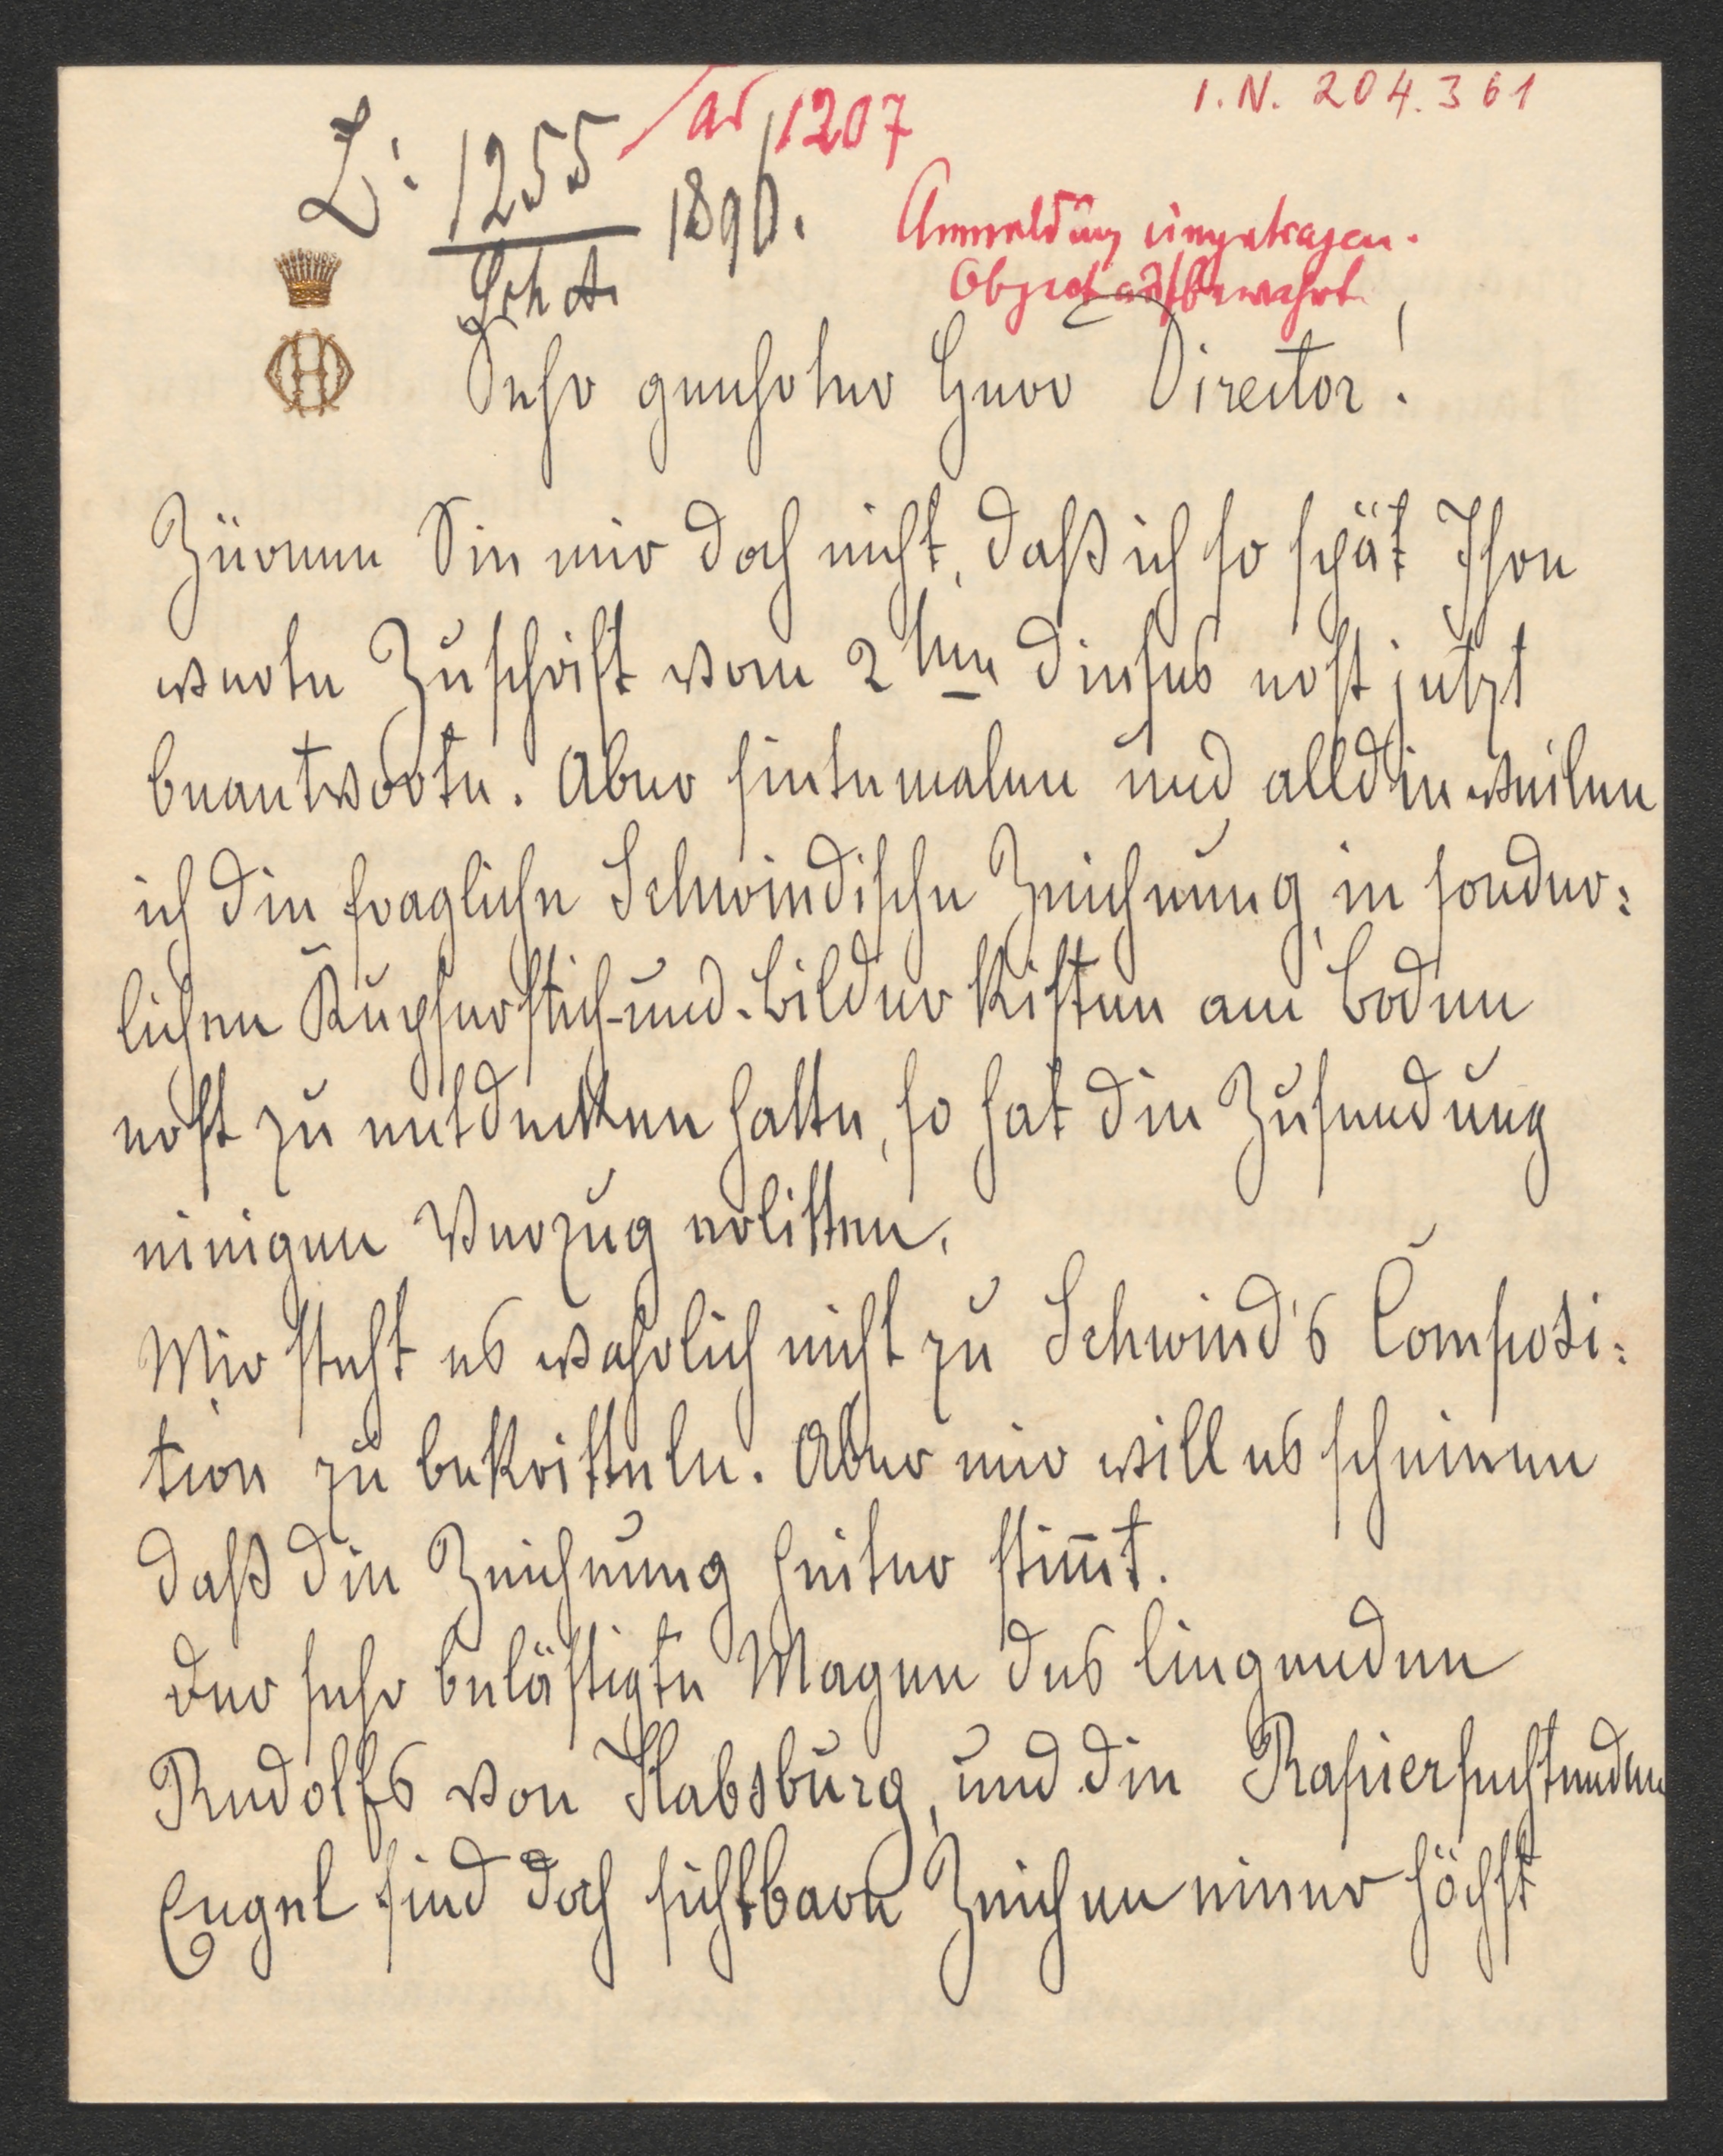 I. N. 204.361
Z: 1255 / ad 1207
Sch A. 1896.
Anmeldung eingetragen.
Object aufbewahrt
Sehr geehrter Herr Director!
Zürnen Sie mir doch nicht, daß ich so spät Ihre
werte Zuschrift vom 2ten dieses erst jetzt
beantworte. Aber sintemalen und alldieweilen
ich die fragliche Schwindische Zeichnung in sonder:
lichen Kupferstich-und-Bilder Kisten am Boden
erst zu entdecken hatte, so hat die Zusendung
einigen Verzug erlitten.
Mir steht es wahrlich nicht zu Schwind's Composi:
tion zu bekritteln. Aber mir will es scheinen
daß die Zeichnung heiter stim̄t.
Der sehr belästigte Magen des liegenden
Rudolfs von Habsburg, und die Rapierfechtenden
Engel sind doch sichtbare Zeichen einer höchst